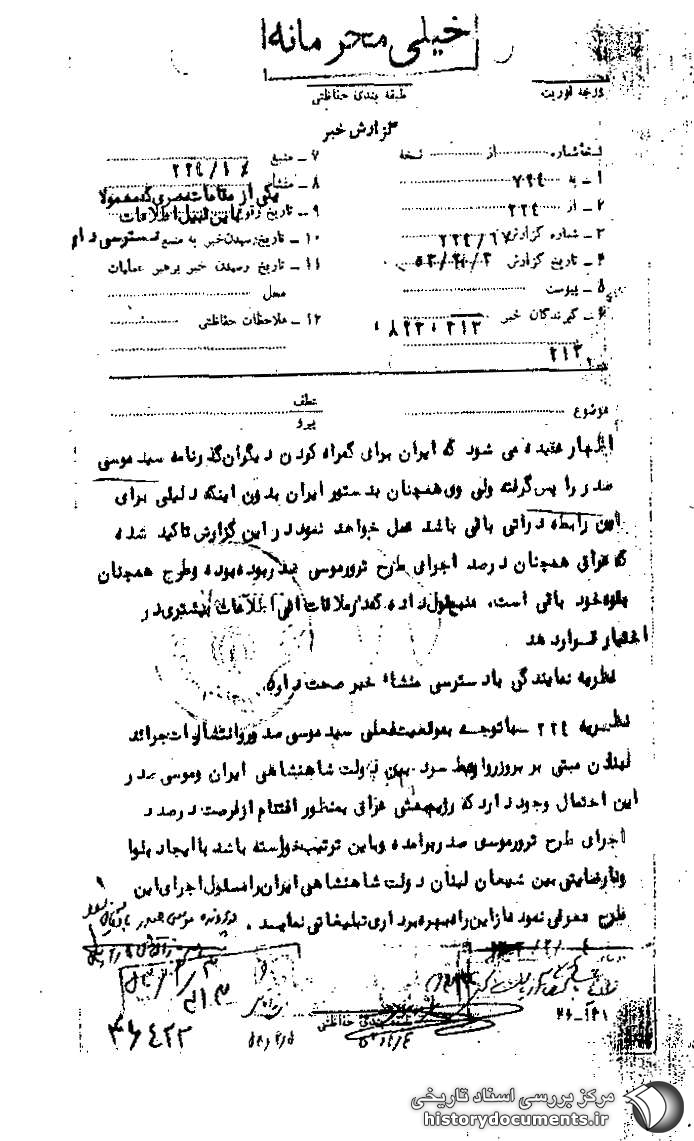 خیلی محرمانه
درجه فوریت
طبقه بندی حفاظتی
گزارش خبر
نسخه شماره از نسخه
۱ ـ به ۷۲۴
۲ ـ از ۲۲۴
۳ ـ شماره گزارش
۴ ـ تاریخ گزارش
۵ ـ پیوست
۶ ـ گیرندگان خبر
۲۱۳
۷ ـ منبع
۸ ـ منشاء یکی از مقامات مصری که معمولا
۹ ـ تاریخ وقوع باین قبیل اطلاعات
۱۰ ـ تاریخ رسیدن خبر به منبع دسترسی دارد
۱۱ ـ تاریخ رسیدن خبر برهبر عملیات
محل
۱۲ ـ ملاحظات حفاظتی
موضوع
عطف
پیرو
اظهار عقیده می شود که ایران برای گمراه کردن دیگران گذرنامه سید موسی
صدر را پس گرفته ولی وی همچنان بدستور ایران بدون اینکه دلیلی برای
این رابطه در اتی باقی باشد عمل خواهد نمود در این گزارش تاکید شده
که عراق همچنان درصدد اجرای طرح ترور موسی صدر بوده و طرح همچنان
بقوه خود باقی است. منبع قول داده که در ملاقات اتی اطلاعات بیشتری در
اختیار قرار دهد
نظریه نمایندگی با دسترسی منشاء خبر صحت دارد.
نظریه ۲۲۴ ـ با توجه به موقعیت فعلی سید موسی صدر و انتشارات جرائد
لبنان مبنی بر بروز روابط سرد بین دولت شاهنشاهی ایران و موسی صدر
این احتمال وجود دارد که رژیم بعثی عراق بمنظور اغتنام از فرصت درصدد
اجرای طرح ترور موسی صدر برآمده و باین ترتیب خواسته باشد با ایجاد بلوا
و نارضایتی بین شیعیان لبنان دولت شاهنشاهی ایران را مسئول اجرای این
طرح معرفی نموده از این راه بهره برداری تبلیغاتی نماید.
طبقه بندی حفاظتی
۳۶۴۲۲
مرکز بررسی اسناد تاریخی
historydocuments.ir